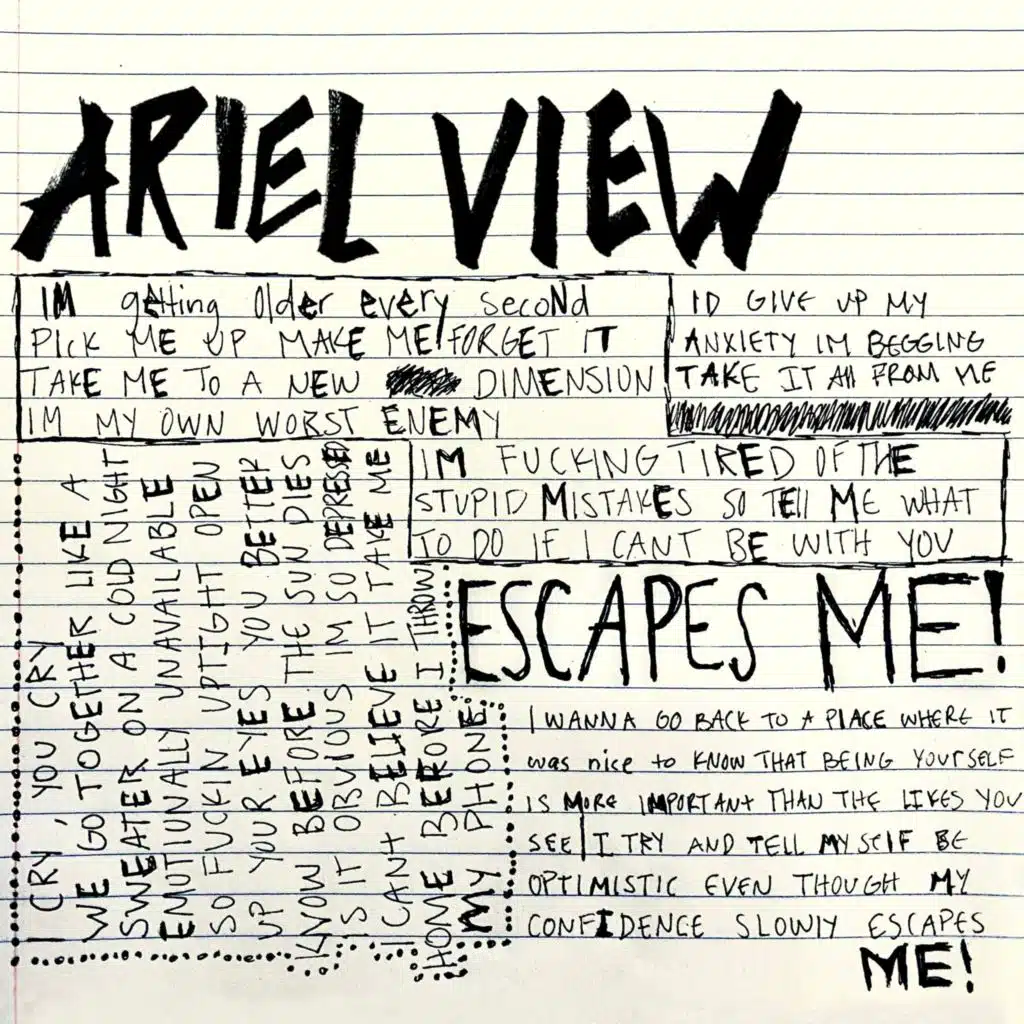 ARIEL VIEW
IM getting Older every secoNd
PIck ME UP MAKE ME FORGET IT
TAKE ME To A NEW DIMENSION
IM MY OWN WORST ENEMY
ID GIVE UP MY
ANXIETY IM BEGGING
TAKE IT All FROM ME
IM FUCKING TIRED OF THE
STUPID MISTAKES SO TEll ME WHAT
TO DO IF I CANT BE WITH YOU
ESCAPES ME!
I CRY, YOU CRY
WE GO TOGETHER LIKE A
SWEATER ON A COLD NIGHT
EMOTIONALLY UNAVAILABLE
SO FUCKIN UPTIGHT OPEN
UP YOUR EYES YOU BETTER
KNOW BEFORE THE SUN DIES
IS IT OBVIOUS IM SO DEPRESSED
I CANT BELIEVE IT TAKE ME
HOME BEFORE I THROW
MY PHONE
I WANNA GO BACK TO A PLACE WHERE IT
was nice to KNOW THAT BEING YOURSELF
IS MORE IMPORTANt THAN THE LIKES YOU
SEE I TRY AND TELL MYSELF BE
OPTIMISTIC EVEN THOUGH MY
CONFIDENCE SLOWlY ESCAPES
ME!